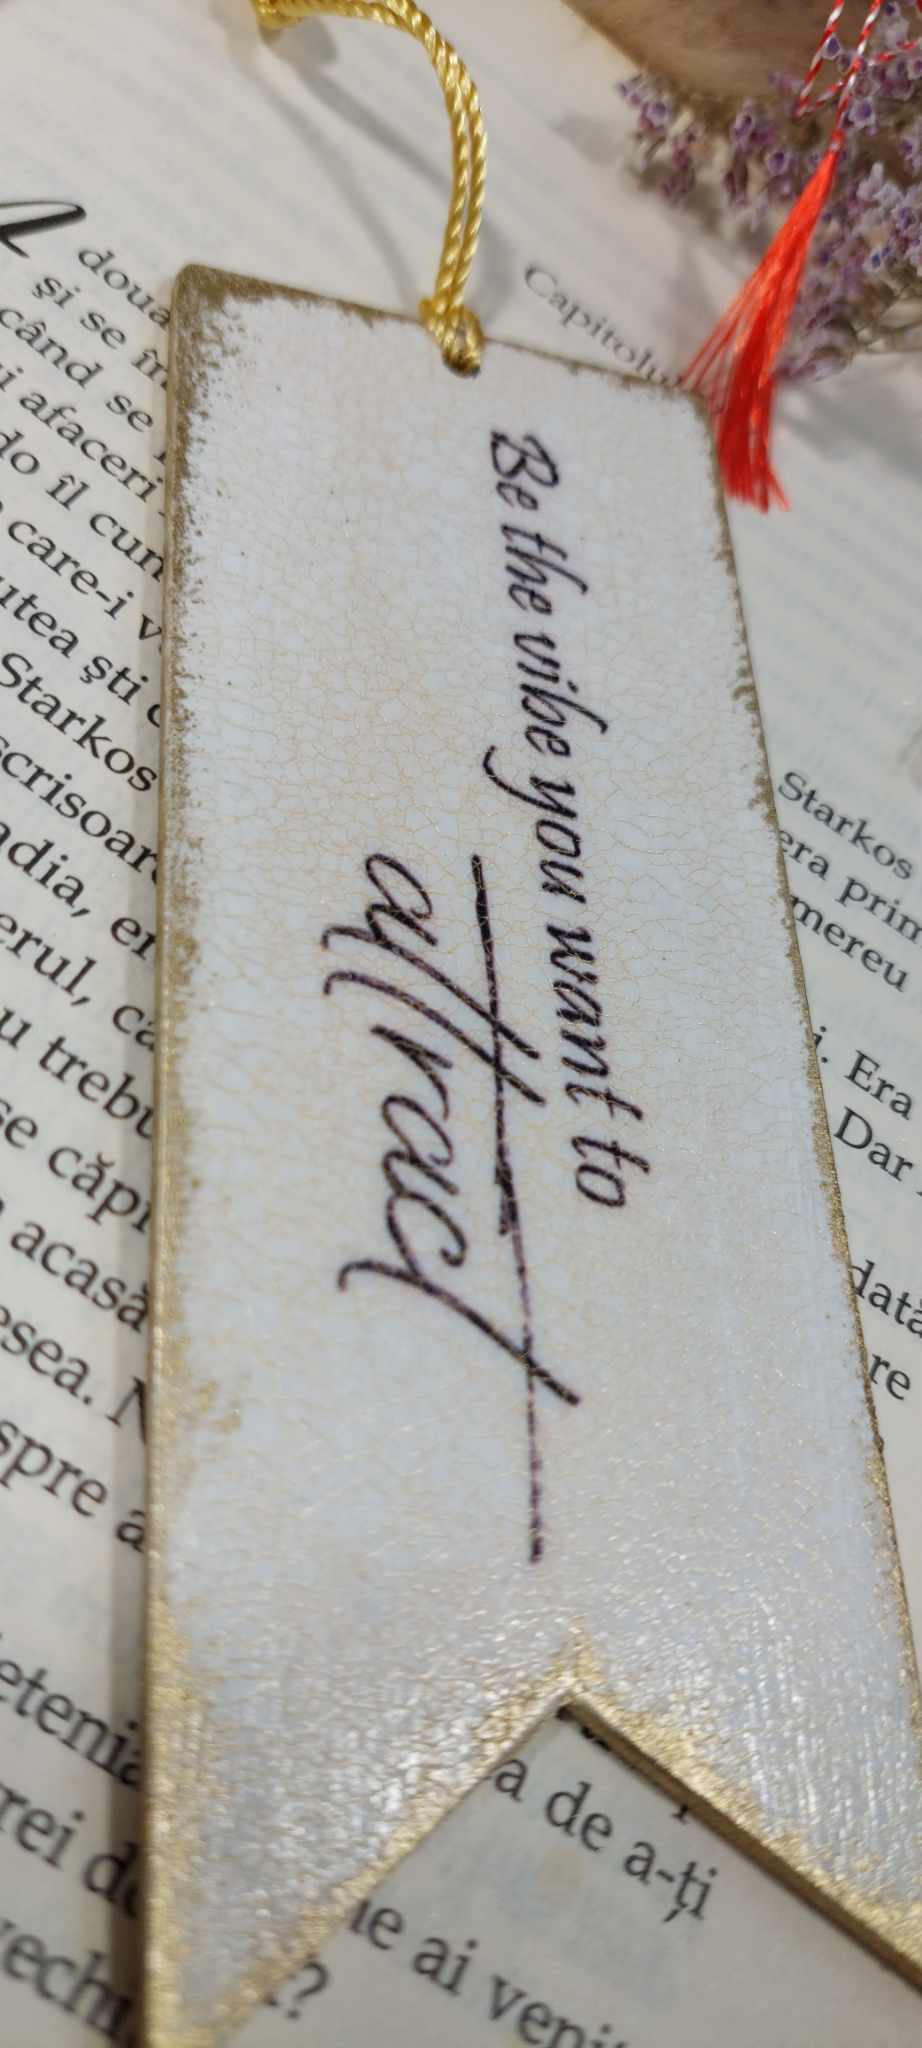 Be the vibe you want to
attract
Capitolu
doua
și se în
când se
afaceri
do îl cun
care-i v
utea ști
Starkos
scrisoare
adia, er
erul, ca
u trebu
se căpr
acasă
esea. N
spre a
etenia
rei de
vechi
Starkos
era prim
mereu
i. Era
Dar
dată
re
a de a-ți
ne ai venit
?